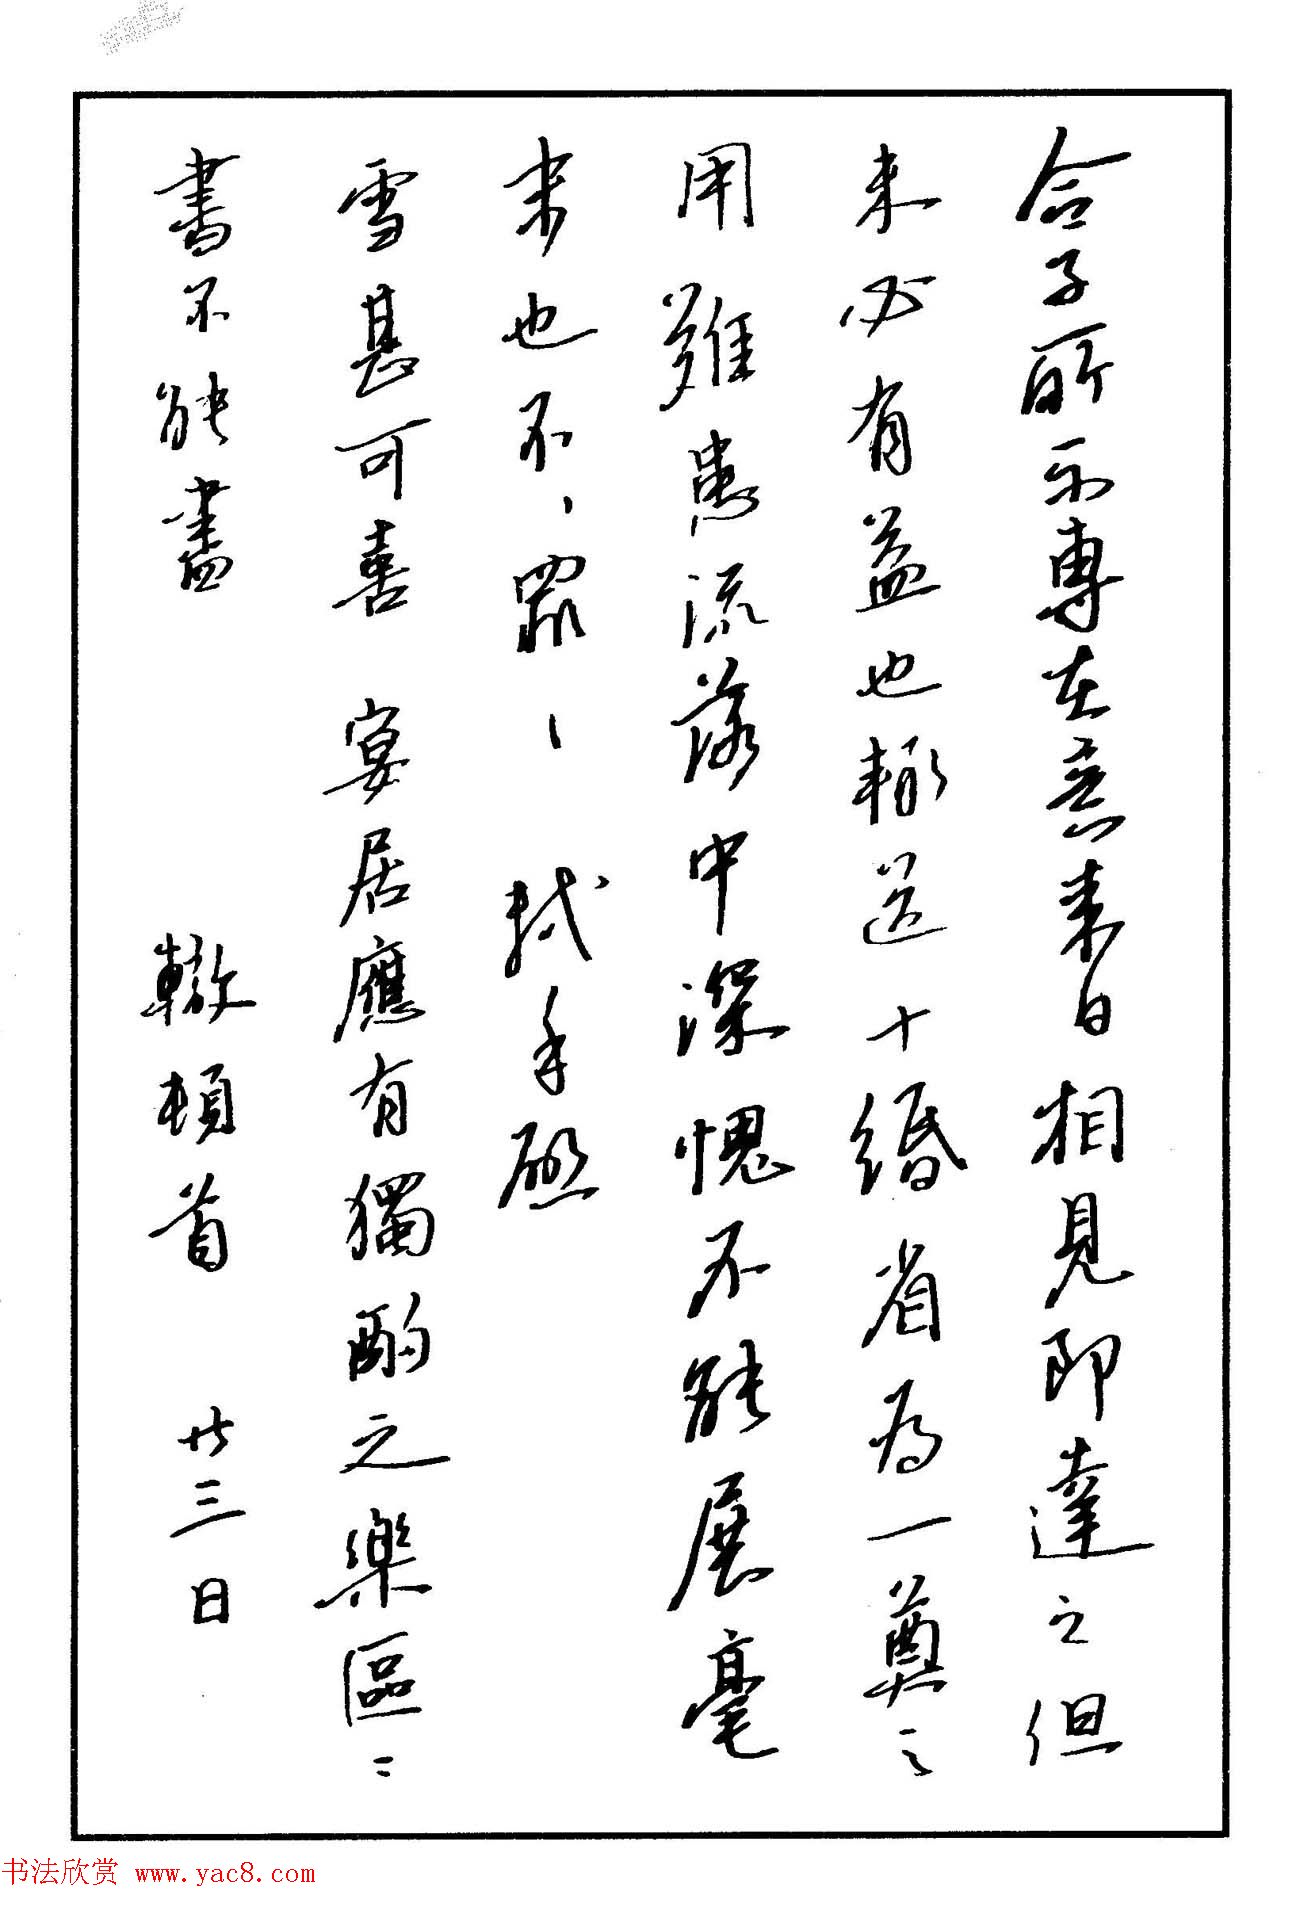 合子所示專在意来日相見即達之但
未必有益也輒送十緡省为一奠之
用難患流落中深愧不能展毫
末也不、罪、 軾手啟
雪甚可喜 宴居應有獨酌之樂區〻
書不能盡 轍頓首 廿三日
书法欣赏 www.yac8.com